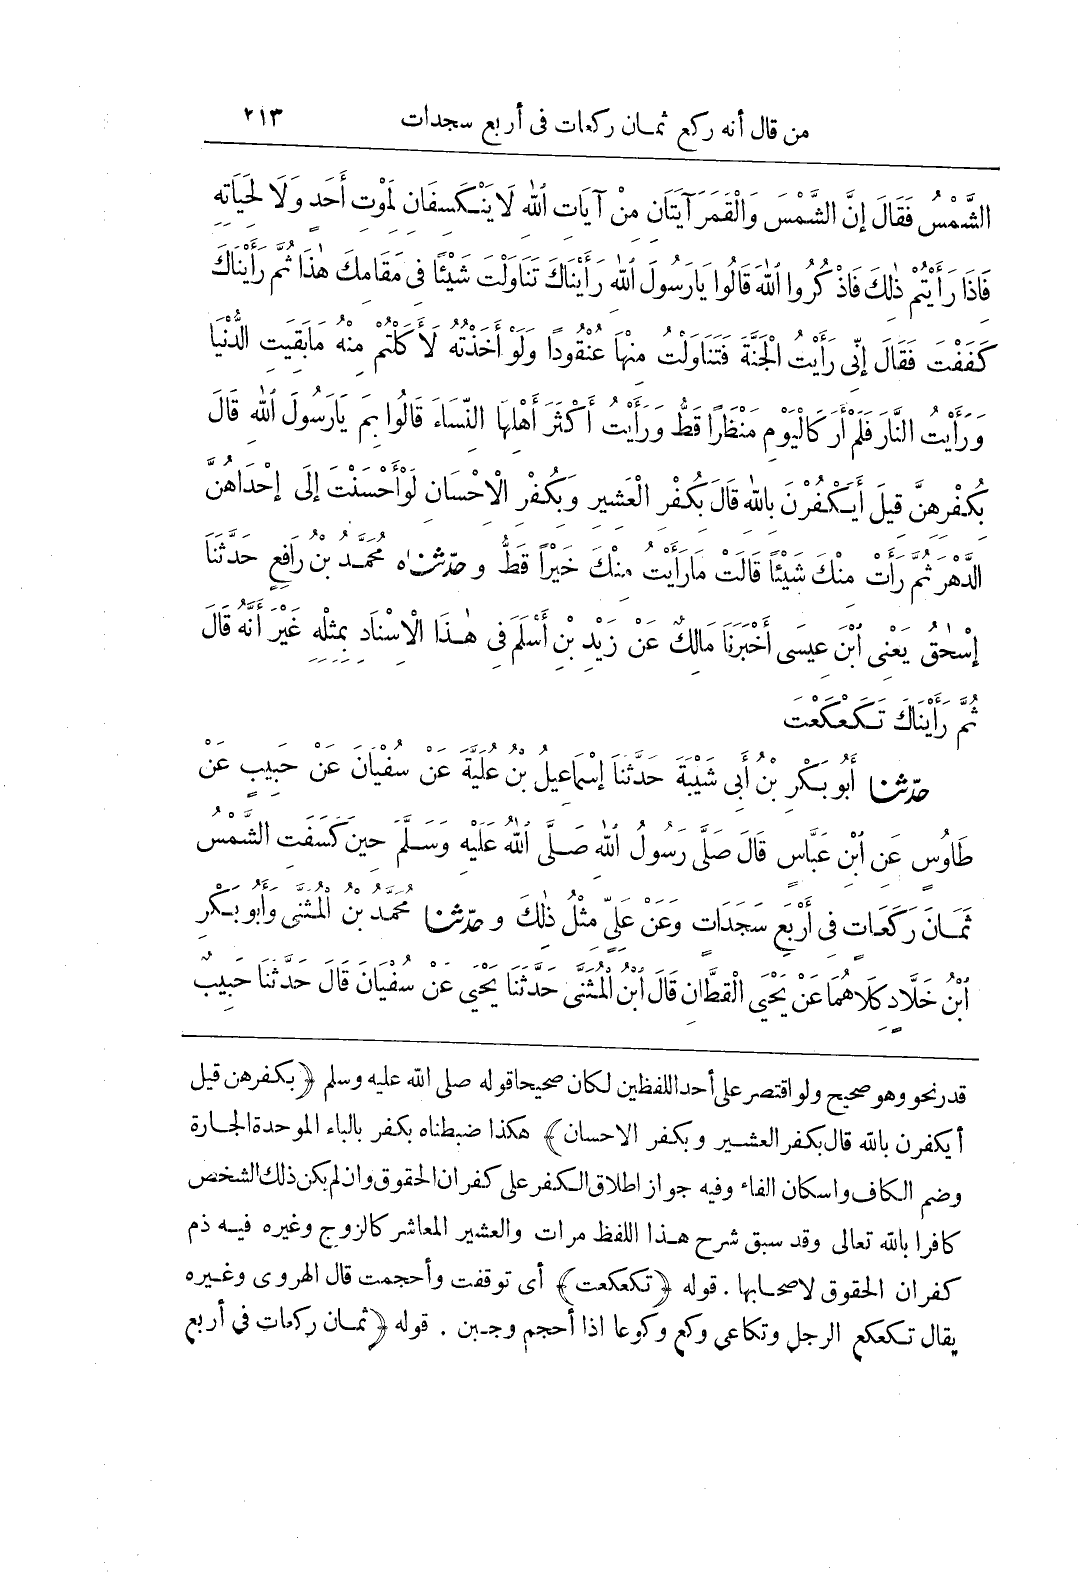 من قال أنه ركع ثمان ركعات فى أربع سجدات ٢١٣
الشَّمْسُ فَقَالَ إِنَّ الشَّمْسَ وَالْقَمَرَ آيَتَانِ مِنْ آيَاتِ اللهِ لَا يَنْكَسِفَانِ لِمَوْتِ أَحَدٍ وَلَا لِحَيَاتِهِ
فَاذَا رَأَيْتُمْ ذٰلِكَ فَاذْكُرُوا اللهَ قَالُوا يَارَسُولَ اللهِ رَأَيْنَاكَ تَنَاوَلْتَ شَيْئًا فِى مَقَامِكَ هٰذَا ثُمَّ رَأَيْنَاكَ
كَفَفْتَ فَقَالَ إِنِّى رَأَيْتُ الْجَنَّةَ فَتَنَاوَلْتُ مِنْهَا عُنْقُودًا وَلَوْ أَخَذْتُهُ لَأَكَلْتُمْ مِنْهُ مَابَقِيَتِ الدُّنْيَا
وَرَأَيْتُ النَّارَ فَلَمْ أَرَ كَالْيَوْمِ مَنْظَرًا قَطُّ وَرَأَيْتُ أَكْثَرَ أَهْلِهَا النِّسَاءَ قَالُوا بِمَ يَارَسُولَ اللهِ قَالَ
بِكُفْرِهِنَّ قِيلَ أَيَكْفُرْنَ بِاللهِ قَالَ بِكُفْرِ الْعَشِيرِ وَبِكُفْرِ الْاحْسَانِ لَوْ أَحْسَنْتَ إِلَى إِحْدَاهُنَّ
الدَّهْرَ ثُمَّ رَأَتْ مِنْكَ شَيْئًا قَالَتْ مَارَأَيْتُ مِنْكَ خَيْرًا قَطُّ و حدّثناه مُحَمَّدُ بْنُ رَافِعٍ حَدَّثَنَا
إِسْحٰقُ يَعْنِى ابْنَ عِيسَى أَخْبَرَنَا مَالِكٌ عَنْ زَيْدِ بْنِ أَسْلَمَ فِى هٰذَا الْاسْنَادِ بِمِثْلِهِ غَيْرَ أَنَّهُ قَالَ
ثُمَّ رَأَيْنَاكَ تَكَعْكَعْتَ
حدّثنا أَبُو بَكْرِ بْنُ أَبِى شَيْبَةَ حَدَّثَنَا إِسْمَاعِيلُ بْنُ عُلَيَّةَ عَنْ سُفْيَانَ عَنْ حَبِيبٍ عَنْ
طَاوُسٍ عَنِ ابْنِ عَبَّاسٍ قَالَ صَلَّى رَسُولُ اللهِ صَلَّى اللهُ عَلَيْهِ وَسَلَّمَ حِينَ كَسَفَتِ الشَّمْسُ
ثَمَانَ رَكَعَاتٍ فِى أَرْبَعِ سَجَدَاتٍ وَعَنْ عَلِيٍّ مِثْلُ ذٰلِكَ و حدّثنا مُحَمَّدُ بْنُ الْمُثَنَّى وَأَبُو بَكْرِ
ابْنُ خَلَّادٍ كِلَاهُمَا عَنْ يَحْيَى الْقَطَّانِ قَالَ ابْنُ الْمُثَنَّى حَدَّثَنَا يَحْيَى عَنْ سُفْيَانَ قَالَ حَدَّثَنَا حَبِيبٌ
قدر نحو وهو صحيح ولو اقتصر على أحد اللفظين لكان صحيحا قوله صلى الله عليه وسلم ﴿بكفرهن قيل
أيكفرن بالله قال بكفر العشير وبكفر الاحسان﴾ هكذا ضبطناه بكفر بالباء الموحدة الجارة
وضم الكاف واسكان الفاء وفيه جواز اطلاق الكفر على كفران الحقوق وان لم يكن ذلك الشخص
كافرا بالله تعالى وقد سبق شرح هذا اللفظ مرات والعشير المعاشر كالزوج وغيره فيه ذم
كفران الحقوق لاصحابها . قوله ﴿تكعكعت﴾ أى توقفت وأحجمت قال الهروى وغيره
يقال تكعكع الرجل وتكاعى وكع وكوعا اذا أحجم وجبن . قوله ﴿ثمان ركعات فى أربع